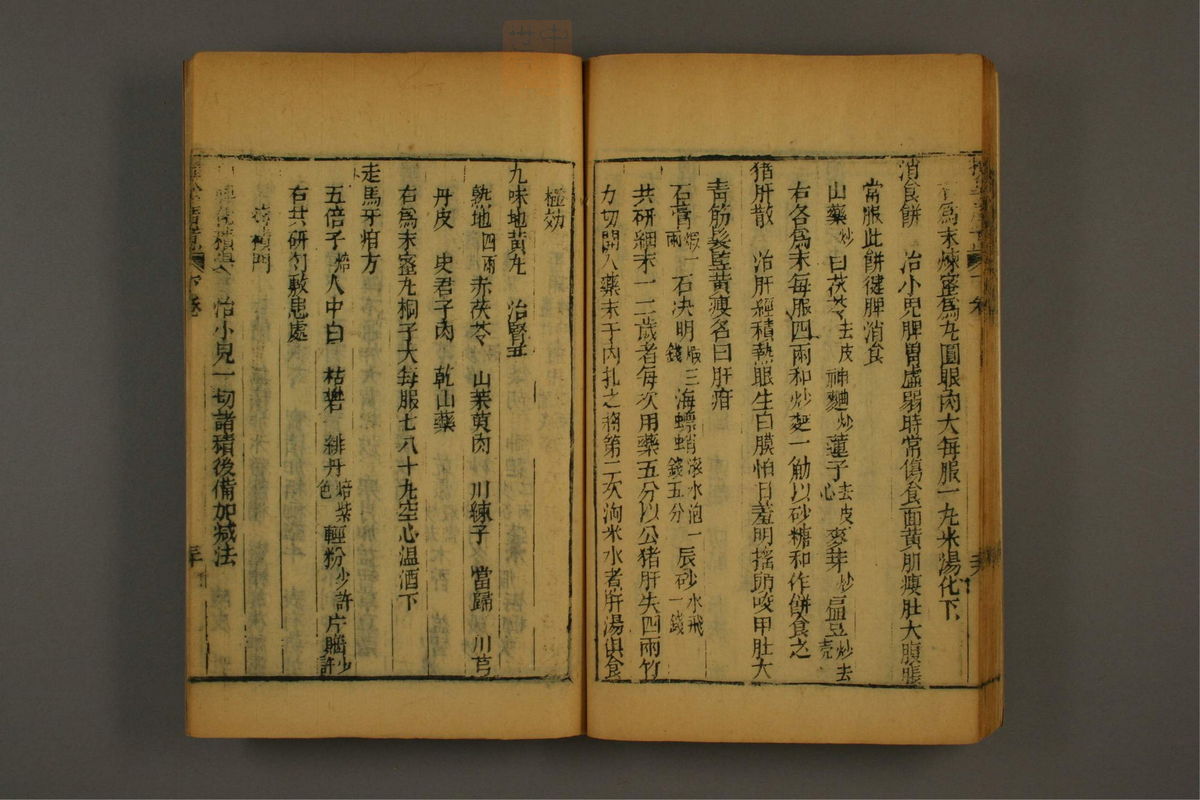 為末煉蜜為丸圓眼肉大每服一丸米湯化下
消食餅　治小兒脾胃虛弱時常傷食面黃肌瘦肚大腹脹
常服此餅健脾消食
山藥炒　白茯苓去皮　神麯炒　蓮子去皮心　麥芽炒　扁豆炒去殼
右各為末每服四兩和炒麵一觔以砂糖和作餅食之
猪肝散　治肝經積熱眼生白膜怕日羞明搖頭咬甲肚大
青筋髮豎黃瘦名曰肝疳
石膏煅一兩　石决明煅三錢　海螵蛸滚水泡一錢五分　辰砂水飛一錢
共研細末一二歲者每次用藥五分以公猪肝失四兩竹
刀切開入藥末于內扎之將第二次泔米水煮肝湯俱食
極効
九味地黃丸　治腎疳
熟地四兩　赤茯苓　山茱萸肉　川練子　當歸　川芎
丹皮　史君子肉　乾山藥
右為末蜜丸桐子大每服七八十丸空心温酒下
走馬牙疳方
五倍子焙　人中白　枯礬　緋丹焙紫色　輕粉少許　片腦少許
右共研勻敷患處
積門
治小兒一切諸積後備加减法
下卷